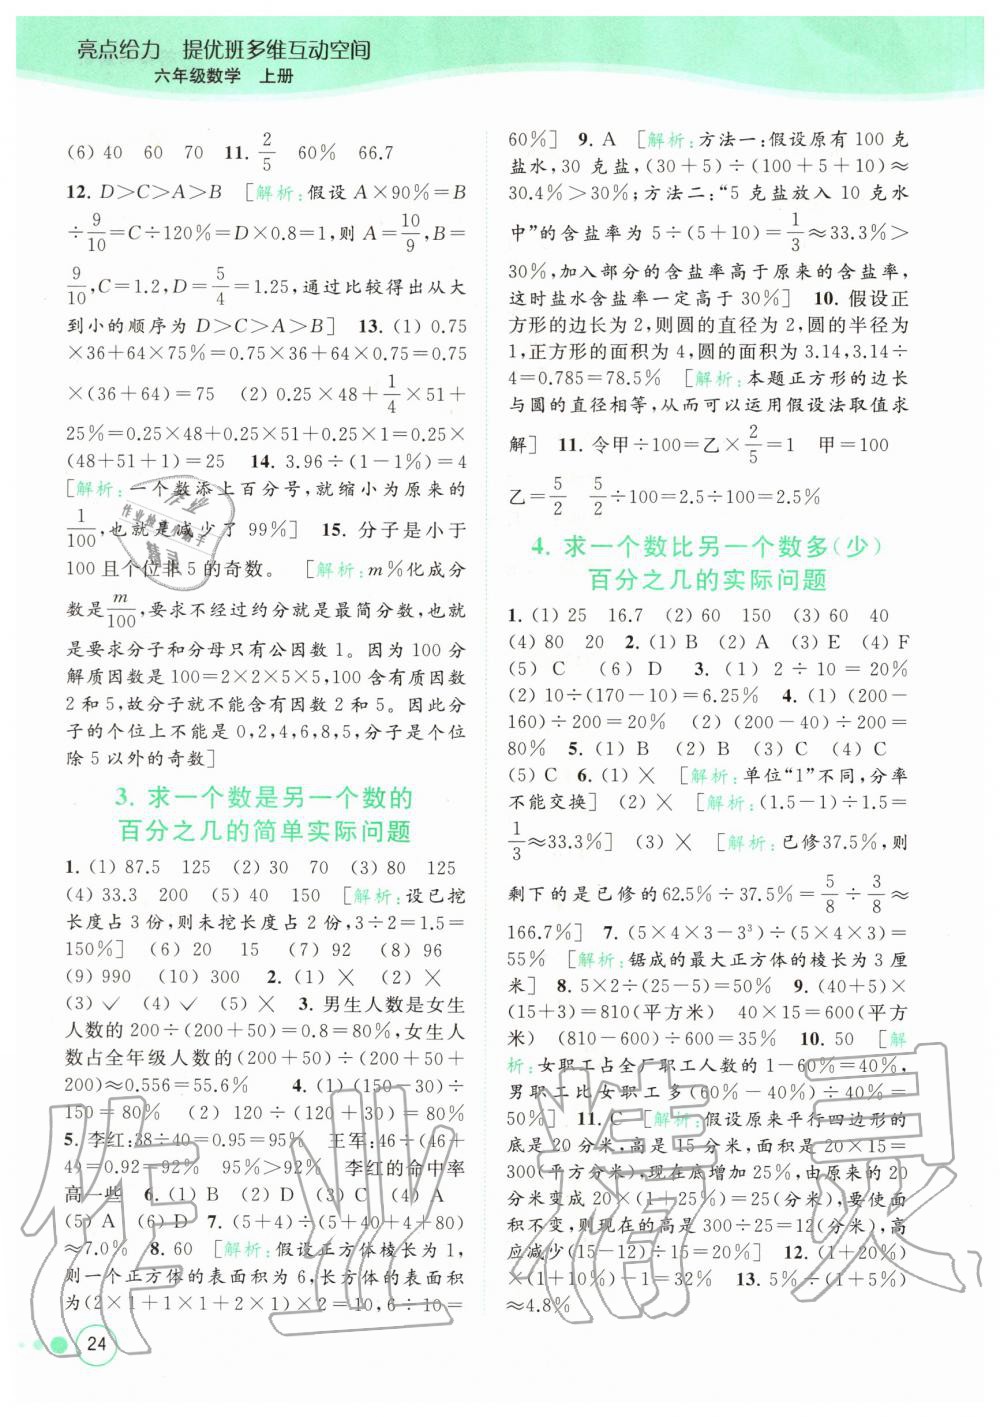 亮点给力　提优班多维互动空间
六年级数学　上册
(6) 40　60　70　11. 2/5　60%　66.7
12. D＞C＞A＞B　[解析:假设 A×90%=B
÷9/10=C÷120%=D×0.8=1,则 A=10/9,B=
9/10,C=1.2,D=5/4=1.25,通过比较得出从大
到小的顺序为 D＞C＞A＞B]　13. (1) 0.75
×36+64×75%=0.75×36+64×0.75=0.75
×(36+64)=75　(2) 0.25×48+1/4×51+
25%=0.25×48+0.25×51+0.25×1=0.25×
(48+51+1)=25　14. 3.96÷(1-1%)=4
[解析:一个数添上百分号,就缩小为原来的
1/100,也就是减少了 99%]　15. 分子是小于
100 且个位非 5 的奇数。　[解析:m%化成分
数是m/100,要求不经过约分就是最简分数,也就
是要求分子和分母只有公因数 1。因为 100 分
解质因数是 100=2×2×5×5,100 含有质因数
2 和 5,故分子就不能含有因数 2 和 5。因此分
子的个位上不能是 0,2,4,6,8,5,分子是个位
除 5 以外的奇数]
3. 求一个数是另一个数的
百分之几的简单实际问题
1. (1) 87.5　125　(2) 30　70　(3) 80　125
(4) 33.3　200　(5) 40　150　[解析:设已挖
长度占 3 份,则未挖长度占 2 份,3÷2=1.5=
150%]　(6) 20　15　(7) 92　(8) 96
(9) 990　(10) 300　2. (1) ×　(2) ×
(3) ✓　(4) ✓　(5) ×　3. 男生人数是女生
人数的 200÷(200+50)=0.8=80%,女生人
数占全年级人数的(200+50)÷(200+50+
200)≈0.556=55.6%　4. (1) (150-30)÷
150=80%　(2) 120÷(120+30)=80%
5. 李红:38÷40=0.95=95%　王军:46÷(46+
4)=0.92=92%　95%＞92%　李红的命中率
高一些　6. (1) B　(2) D　(3) C　(4) A
(5) A　(6) D　7. (5+4)÷(5+4+80)
≈7.0%　8. 60　[解析:假设正方体棱长为 1,
则一个正方体的表面积为 6,长方体的表面积
为(2×1+1×1+2×1)×2=10,6÷10=
60%]　9. A　[解析:方法一:假设原有 100 克
盐水,30 克盐,(30+5)÷(100+5+10)≈
30.4%＞30%;方法二:“5 克盐放入 10 克水
中”的含盐率为 5÷(5+10)=1/3≈33.3%＞
30%,加入部分的含盐率高于原来的含盐率,
这时盐水含盐率一定高于 30%]　10. 假设正
方形的边长为 2,则圆的直径为 2,圆的半径为
1,正方形的面积为 4,圆的面积为 3.14,3.14÷
4=0.785=78.5%　[解析:本题正方形的边长
与圆的直径相等,从而可以运用假设法取值求
解]　11. 令甲÷100=乙×2/5=1　甲=100
乙=5/2　5/2÷100=2.5÷100=2.5%
4. 求一个数比另一个数多(少)
百分之几的实际问题
1. (1) 25　16.7　(2) 60　150　(3) 60　40
(4) 80　20　2. (1) B　(2) A　(3) E　(4) F
(5) C　(6) D　3. (1) 2÷10=20%
(2) 10÷(170-10)=6.25%　4. (1) (200-
160)÷200=20%　(2) (200-40)÷200=
80%　5. (1) B　(2) B　(3) C　(4) C
(5) C　6. (1) ×　[解析:单位“1”不同,分率
不能交换]　(2) ×　[解析:(1.5-1)÷1.5=
1/3≈33.3%]　(3) ×　[解析:已修37.5%,则
剩下的是已修的62.5%÷37.5%=5/8÷3/8≈
166.7%]　7. (5×4×3-3³)÷(5×4×3)=
55%　[解析:锯成的最大正方体的棱长为 3 厘
米]　8. 5×2÷(25-5)=50%　9. (40+5)×
(15+3)=810(平方米)　40×15=600(平方
米)　(810-600)÷600=35%　10. 50　[解
析:女职工占全厂职工人数的 1-60%=40%,
男职工比女职工多(60%-40%)÷40%=
50%]　11. C　[解析:假设原来平行四边形的
底是 20 分米,高是 15 分米,面积是 20×15=
300(平方分米),现在底增加 25%,由原来的 20
分米变成 20×(1+25%)=25(分米),要使面
积不变,则现在的高是 300÷25=12(分米),高
应减少(15-12)÷15=20%]　12. (1+20%)
×(1+10%)-1=32%　13. 5%÷(1+5%)
≈4.8%
24
作业
作业检查小助手
精灵
作业精灵